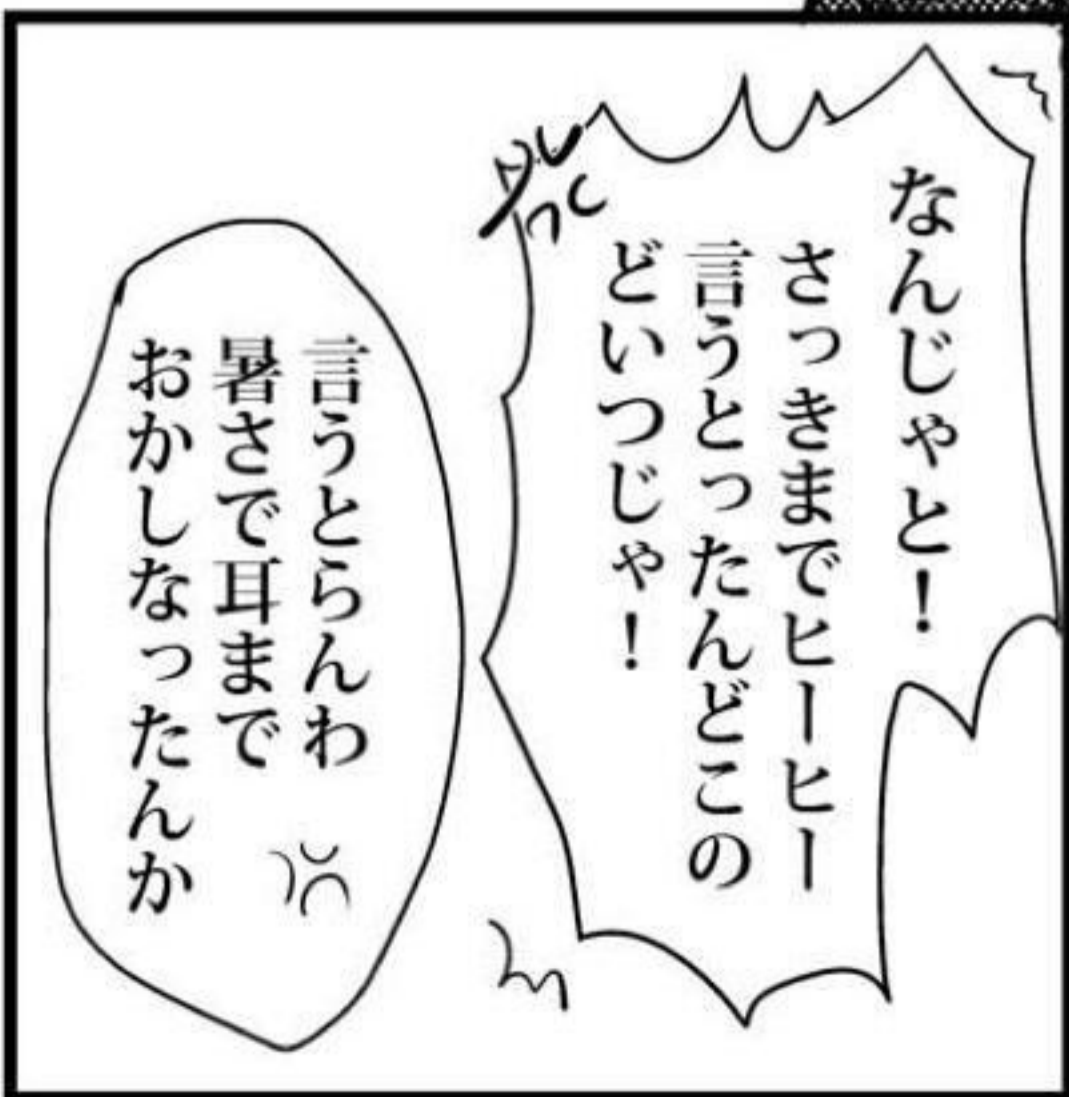 なんじゃと！
さっきまでヒーヒー
言うとったんどこの
どいつじゃ！
言うとらんわ
暑さで耳まで
おかしなったんか